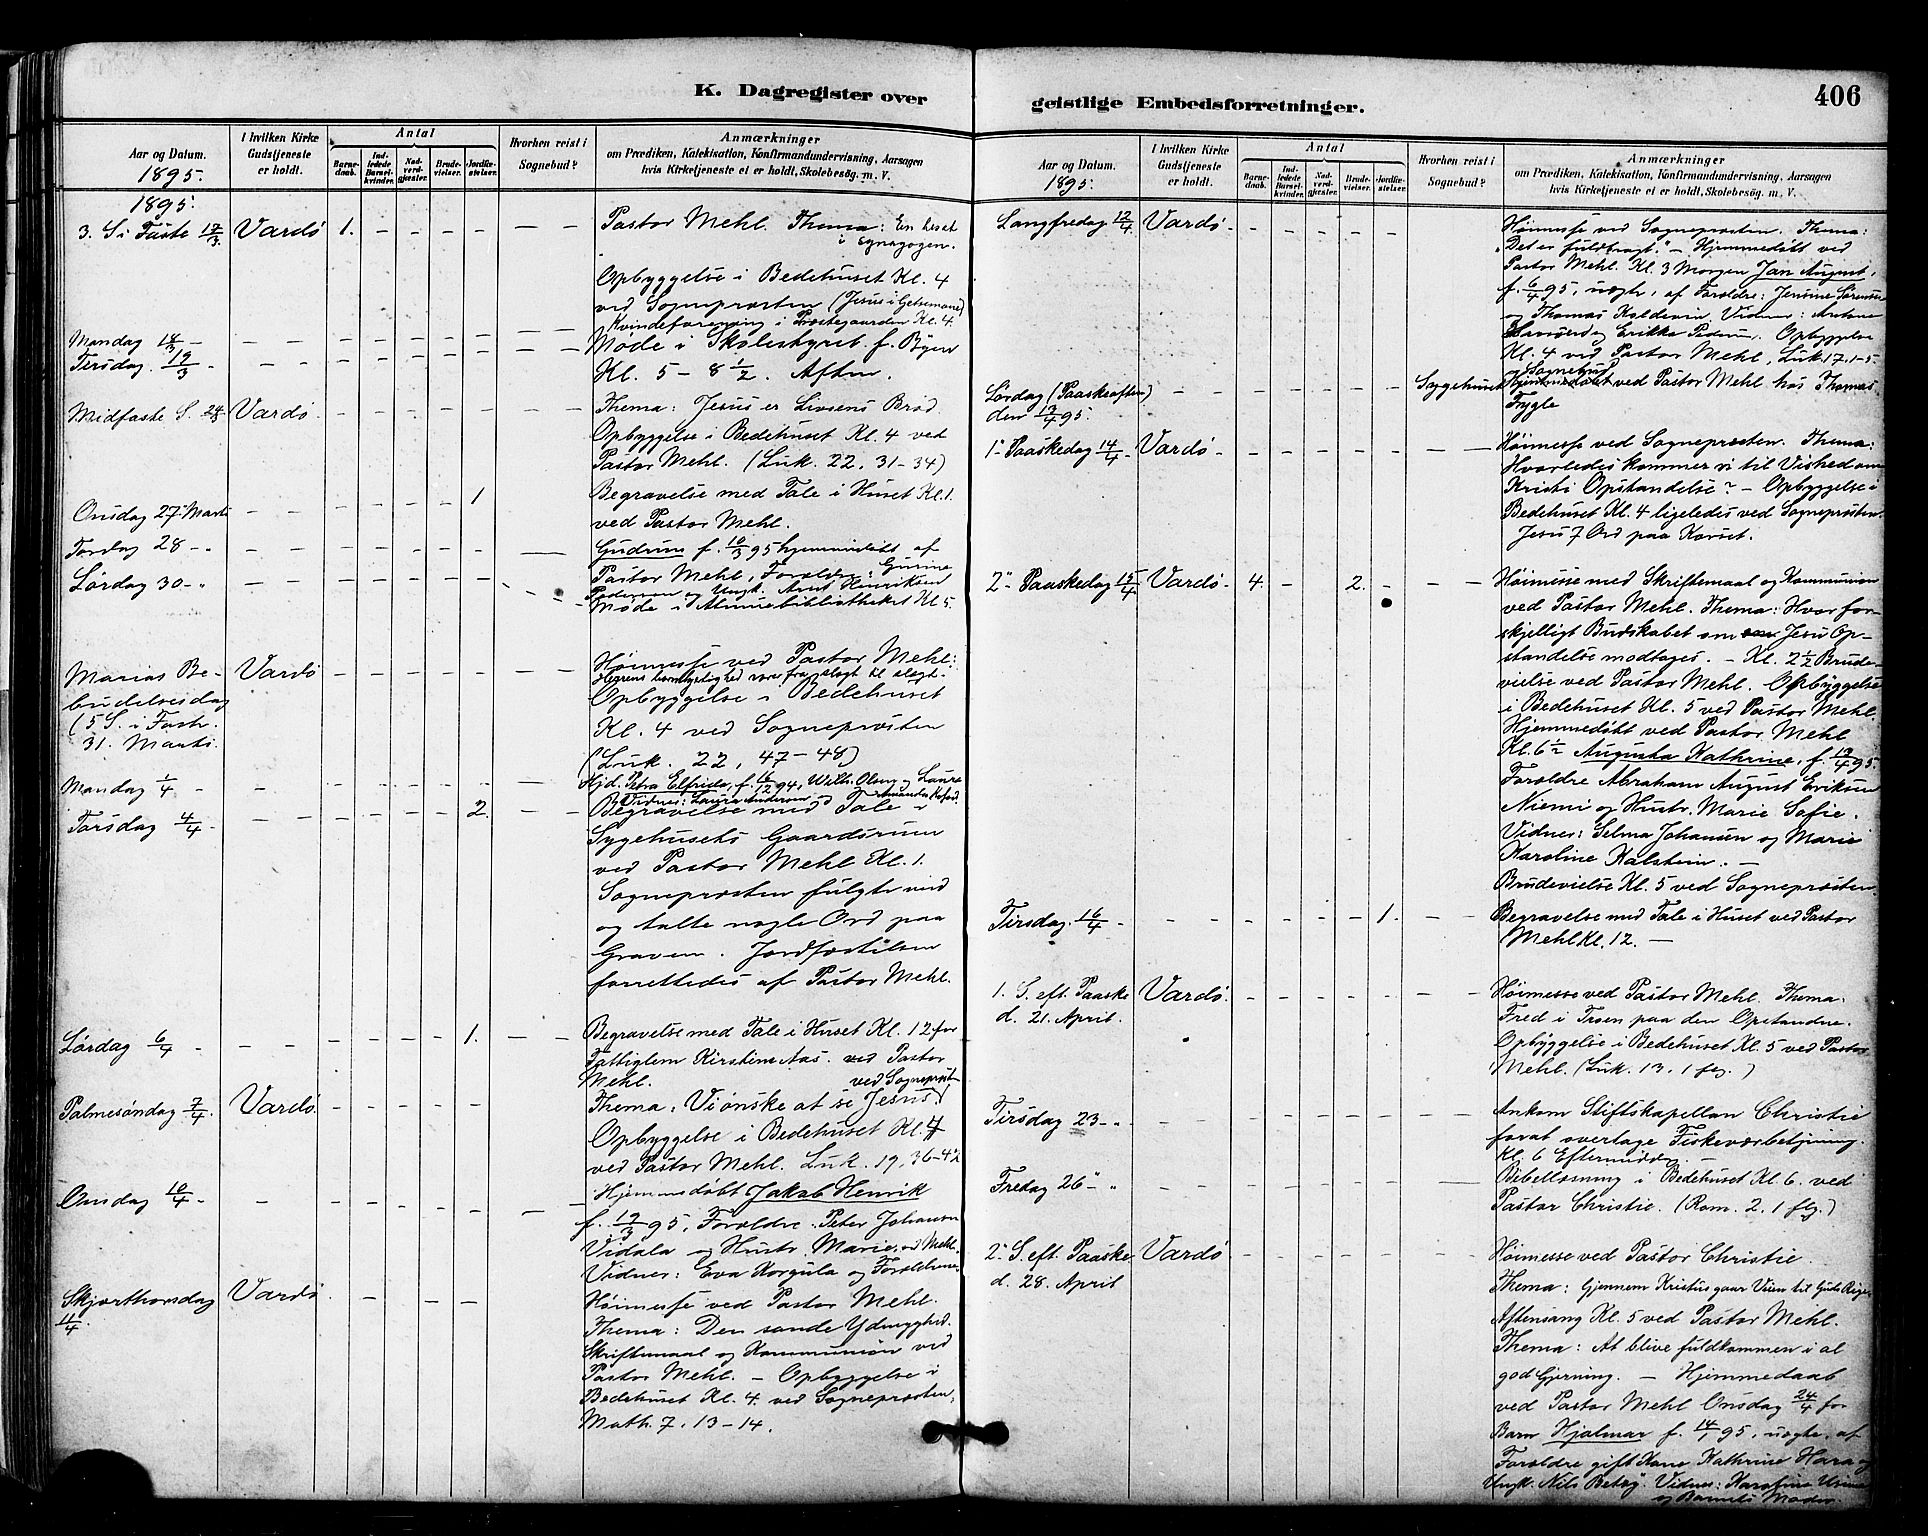 K. Dagregister over
geistlige Embedsforretninger.
406
Aar og Datum.
1895.
I hvilken Kirke Gudstjeneste er holdt.
Antal
Barnedaab.
Indledede Barselkvinder.
Nadverdgjæster.
Brudevielser.
Jordfæstelser.
Hvorhen reist i Sognebud?
Anmærkninger
om Prædiken, Katekisation, Konfirmandundervisning, Aarsagen
hvis Kirketjeneste ei er holdt, Skolebesøg. m. V.
1895.
3. S. i Faste 17/3 Vardö 1. Pastor Mehl. Thema: En besat
i Synagogen.
Opbyggelse i Bedehuset Kl. 4
ved Sognepræsten (Jesus i Getsemane)
Mandag 18/3 Kvindeforening i Præstegaarden Kl. 4.
Tirsdag 19/3 Møde i Skolestyret f. Byen
Kl. 5 – 8 1/2. Aften.
Midfaste S. 24/3 Vardö. Thema: Jesus er Livsens Brød.
Opbyggelse i Bedehuset Kl. 4 ved
Pastor Mehl. (Luk. 22, 31–34)
Onsdag 27 Marts 1 Begravelse med Tale i Huset Kl. 1.
ved Pastor Mehl.
Torsdag 28 – " Gudrun f. 10/3 95 hjemmedøbt af
Lørdag 30 – " Pastor Mehl, Forældre: Gurine
Pedersen og Ungk. Henriksen
Møde i Almuebibliotheket Kl 5.
Marias Be- Vardö Høimesse ved Pastor Mehl:
budelsesdag Herrens barmhjertighed varer fra slægt til slægt.
(5 S. i Faste. Opbyggelse i Bedehuset
31. Marts. Kl. 4 ved Sognepræsten
(Luk. 22, 47–48)
Mandag 1/4 Hjd. Petra Elfrida, f. 6/12 94, Wilh. Olsen og Laura
Vidner: Laura Andersen Amanda
Torsdag 4/4 2. Begravelse med Tale i
Sygehusets Gaardsrum
ved Pastor Mehl Kl. 1.
Sognepræsten fulgte med
og talte nogle Ord paa
Graven. Jordfæstelsen
forrettedes af Pastor Mehl.
Lørdag 6/4 1. Begravelse med Tale i Huset Kl. 12 for
Fattiglem Kirstine Aas. ved Pastor
Mehl. ved Sogneprest
Palmesøndag 7/4 Vardö. Thema: Vi ønske at se Jesus
Opbyggelse i Bedehuset Kl. 4
ved Pastor Mehl. Luk. 19, 36–42
Onsdag 10/4 Hjemmedøbt Jakob Henrik
f. 19/3 95, Forældre: Peter Johansen
Vidala og Hustr. Marie, ved Mehl.
Vidner: Eva Korgula og Forældrene
Skjærthorsdag Vardö. Høimesse ved Pastor Mehl.
11/4. Thema: Den sande Ydmyghed.
Skriftemaal og Kommunion ved
Pastor Mehl. – Opbyggelse i
Bedehuset Kl. 4. ved Sognepræsten,
Math. 7, 13–14.
Aar og Datum.
1895.
I hvilken Kirke Gudstjeneste er holdt.
Antal
Barnedaab.
Indledede Barselkvinder.
Nadverdgjæster.
Brudevielser.
Jordfæstelser.
Hvorhen reist i Sognebud?
Anmærkninger
om Prædiken, Katekisation, Konfirmandundervisning, Aarsagen
hvis Kirketjeneste ei er holdt, Skolebesøg. m. V.
Langfredag 12/4 Vardö. Høimesse ved Sognepræsten. Thema:
"Det er fuldbragt." – Hjemmedøbt ved
Pastor Mehl. Kl. 3 Morgen Jan August,
f. 6/4 95, uægte, af Forældre: Jensine Sørensen
og Thomas Koldevin. Vidner: Antone
og Erikka Opbyggelse
Kl. 4 ved Pastor Mehl, Luk. 17. 1–5.
Lørdag (Paaskeaften) Sygehuset Sognebud ved Pastor Mehl hos Thomas
den 13/4 95. Trygle
1ste Paaskedag 14/4 Vardö. Høimesse ved Sognepræsten. Thema:
Hvorledes kommer vi til Vished om
Kristi Opstandelse? – Opbyggelse i
Bedehuset Kl. 4 ligeledes ved Sognepræsten.
Jesu 7 Ord paa Korset.
2den Paaskedag 15/4 Vardö. 4. 2. Høimesse med Skriftemaal og Kommunion
ved Pastor Mehl. Thema: Hvor for-
skjelligt Budskabet om Jesu Op-
standelse modtages. – Kl. 2 1/2 Brude-
vielse ved Pastor Mehl. Opbyggelse
i Bedehuset Kl. 5 ved Pastor Mehl.
Hjemmedøbt ved Pastor Mehl
Kl. 6 1/2 Augusta Kathrine, f. 13/4 95.
Forældre Abraham August Eriksen
Niemi og Hustr. Marie Sofie.
Vidner: Selma Johansen og Marie
Karoline Kalstein. –
Brudevielse Kl. 5 ved Sognepræsten.
Tirsdag 16/4 1. Begravelse med Tale i Huset ved Pastor
Mehl Kl. 12. –
1. S. eft. Paaske Vardö. Høimesse ved Pastor Mehl. Thema:
d. 21. April. Fred i Troen paa den Opstandne.
Opbyggelse i Bedehuset Kl. 5 ved Pastor
Mehl. (Luk. 13, 1 flg.)
Tirsdag 23 – " Ankom Stiftskapellan Christie
forat overtage Fiskeværbetjening.
Kl. 6 Eftermiddag. –
Fredag 26 – " Bibellæsning i Bedehuset Kl. 6. ved
Pastor Christie. (Rom. 2, 1 flg.)
2. S. eft. Paaske Vardö Høimesse ved Pastor Christie.
d. 28. April Thema: Gjennem Kristus gaar Veien til Guds Rige.
Aftensang Kl. 5 ved Pastor Mehl.
Thema: At blive fuldkommen i al
god Gjerning. – Hjemmedaab
ved Pastor Mehl Onsdag 24/4 for
Barn Hjalmar f. 14/1 95, uægte, af
Forældre gift Kone Kathrine Hara og
Ungk. Nils Betsy. Vidner: Karoline
og Barnets Moder.